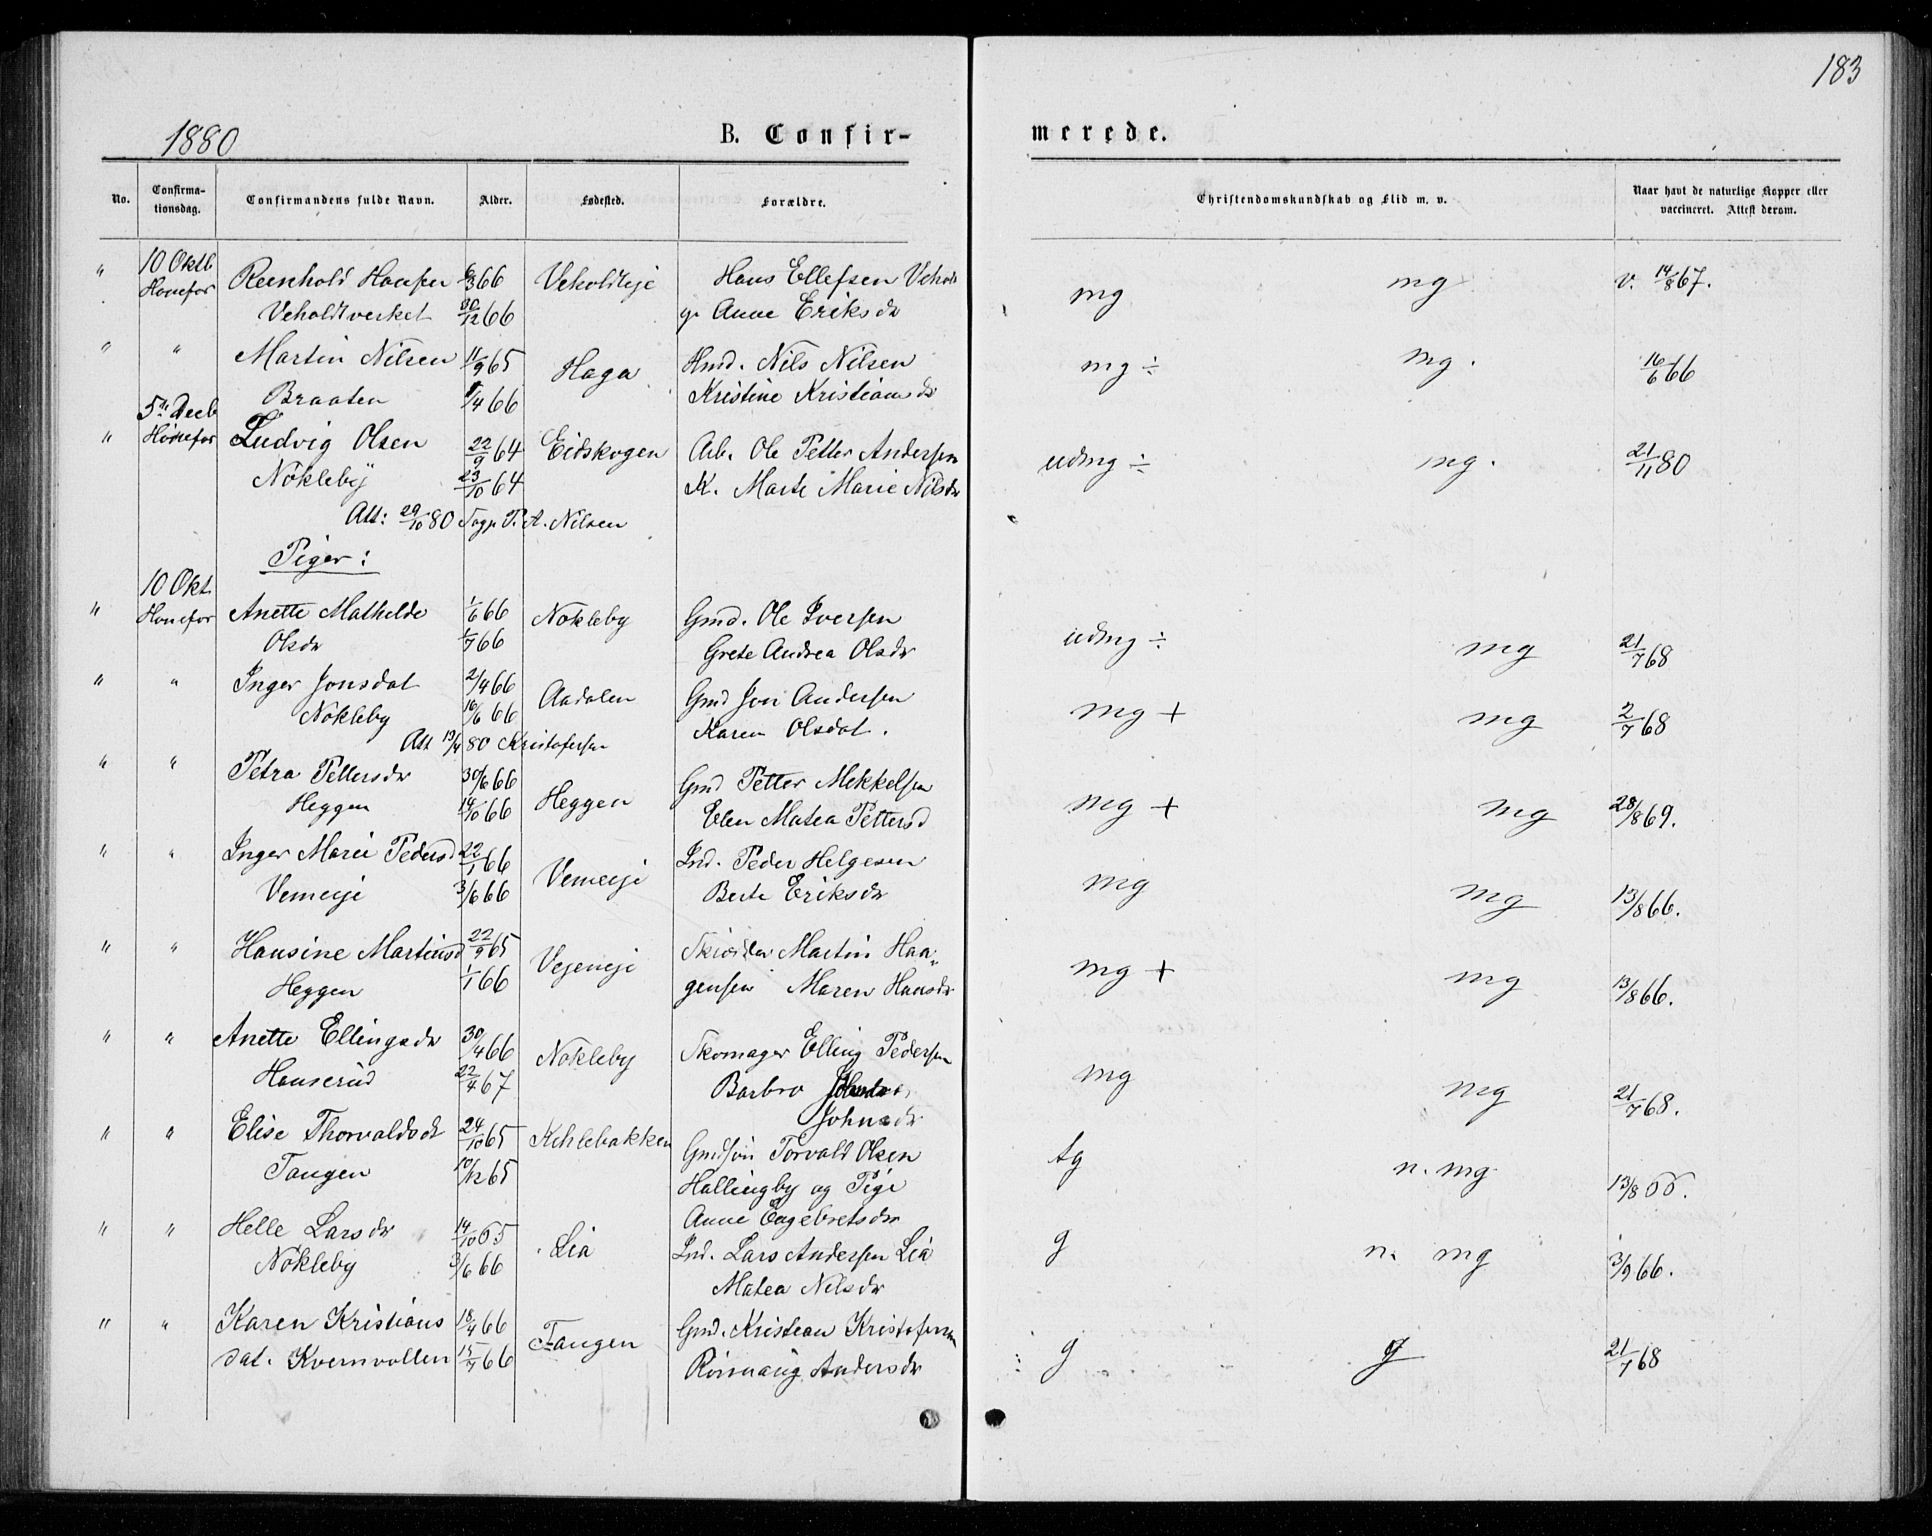 183
1880 B. Confir- merede.
No. Confirma-tionsdag. Confirmandens fulde Navn. Alder. Fødested. Forældre. Christendomskundskab og Flid m. v. Naar havt de naturlige Kopper eller vaccineret. Attest derom.
" 10 Oktb Reinhold Hansen 6/3 66 Veholdteje Hans Ellefsen Vehold mg mg v. 14/8 67.
Hønefos Veholdtverket 30/12 66 g. Anne Eriksdr
" " Martin Nilsen 11/9 65 Haga Hmd. Nils Nilsen mg ÷ mg. 16/6 66
Braaten 1/4 66 Kristine Kristiansdr
5te Decb
" Hønefos Ludvig Olsen 22/9 64 Eidskogen Arb. Ole Petter Andersen udmg ÷ mg. 21/11 80
Nøkleby 23/10 64 K. Marte Marie Nilsdr
Att: 29/10 80 Sogp P. A. Nilsen
Piger:
10 Okt
" Hønefos Anette Mathilde 1/6 66 Nøkleby Gmd. Ole Iversen udmg ÷ mg 21/7 68
Olsdr 1/7 66 Grete Andrea Olsdr
" " Inger Jonsdat 2/4 66 Aadalen Gmd Jon Andersen mg + mg 2/7 68
Nøkleby 10/6 66 Karen Olsdat.
Att 19/4 80 Kristofersen
" " Petra Pettersdr 30/6 66 Heggen Gmd Petter Mekkelsen mg + mg 28/8 69.
Heggen 14/10 66 Elen Matea Pettersd
" " Inger Marie Pedersd 22/1 66 Vemeije Ind. Peder Helgesen mg mg 13/8 66.
Vemeije 3/6 66 Berte Eriksdr
" " Hansine Martinsd 22/9 65 Vejeneje Skrædder Martin Haa- mg + mg 13/8 66.
Heggen 1/1 66 gensen Maren Hansdr
" " Anette Ellingsdr 30/4 66 Nøkleby Skomager Elling Pedersen mg mg 21/7 68.
Hanserud 22/4 67 Barbro
Johnsdr
" " Elise Thorvaldsdt 24/10 65 Kihlebakken Gmdsøn Torvald Olsen tg n. mg 13/8 66.
Tangen 10/12 65 Hallingby og Pige
Anne Engebretsdr
" " Helle Larsdr 14/10 65 Lia Ind. Lars Andersen Lia g n. mg 3/9 66.
Nøkleby 3/6 66 Matea Nilsdr
" " Karen Kristians 18/4 66 Tangen Gmd. Kristian Kristofersen g g 21/7 68
dat. Kvernvollen 15/7 66 Rønnaug Andersdr